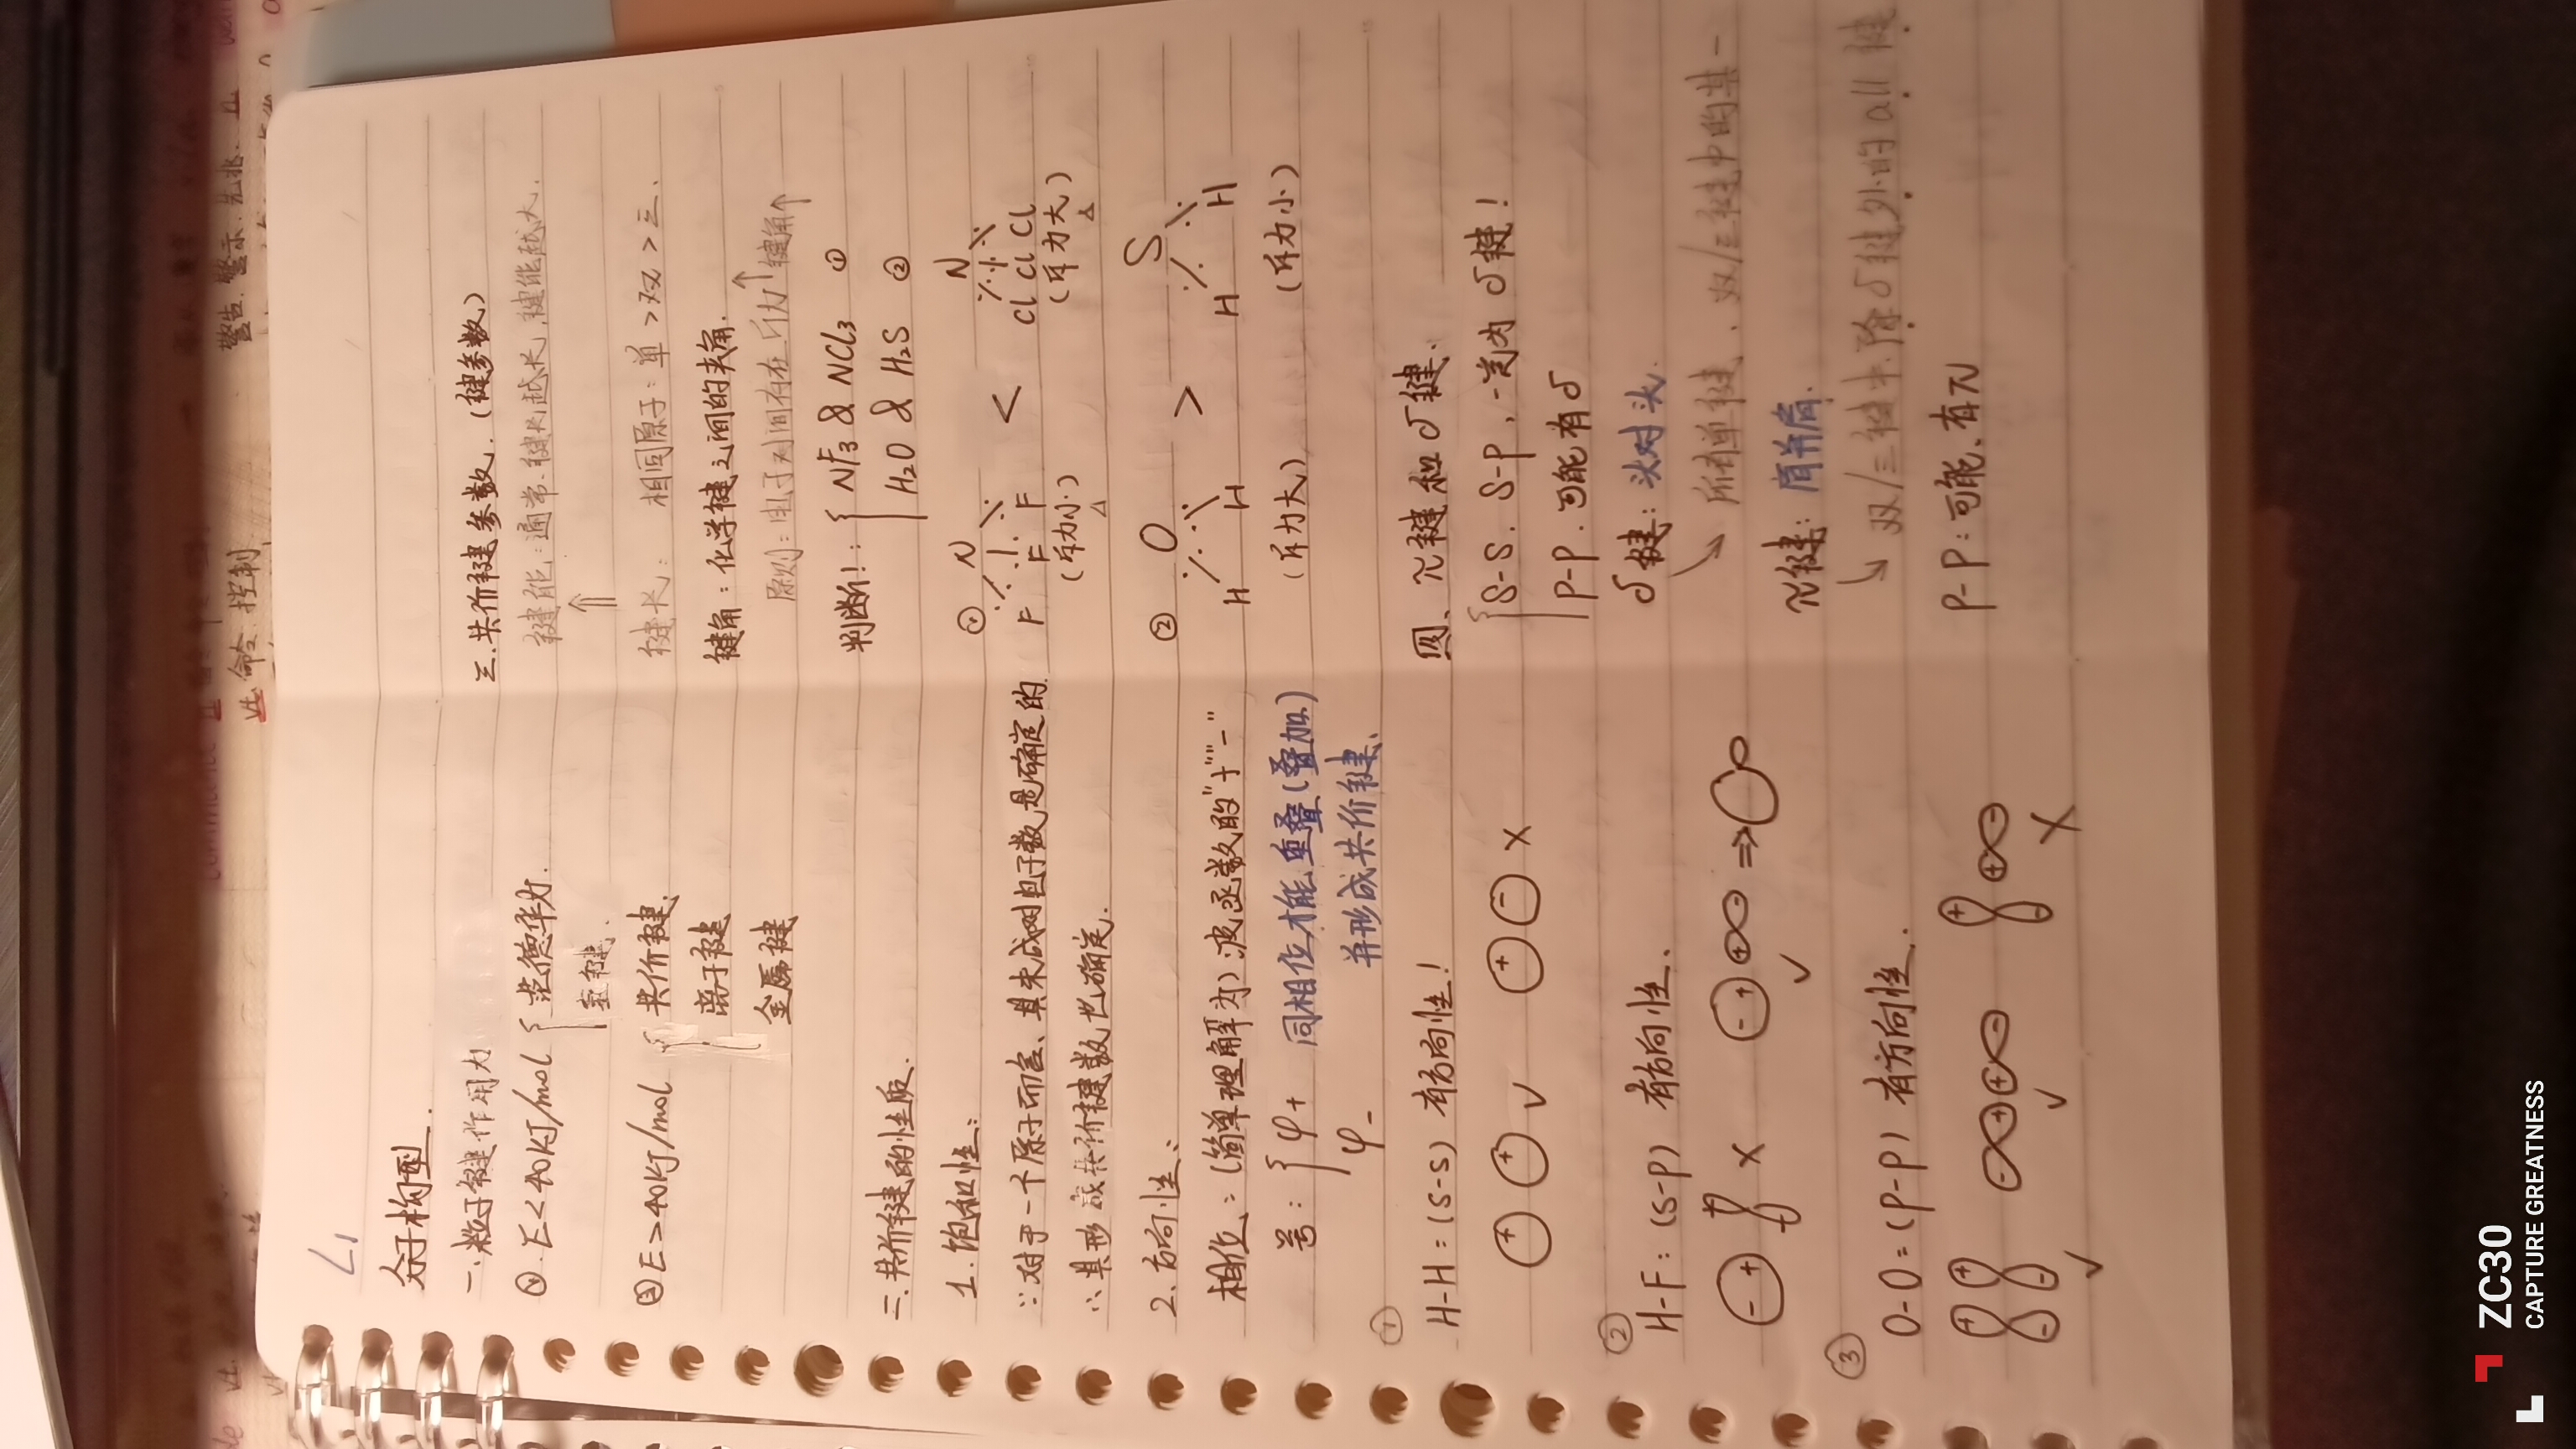 L1
分子构型.
一.粒子键作用力
① E<40KJ/mol { 范德华力.
氢键.
② E>40KJ/mol { 共价键.
离子键
金属键
二.共价键的性质.
1.饱和性:
∵对于一个原子而言、其未成对电子数是确定的
∴其形成共价键数也确定.
2.方向性:
相位:(简单理解为)波函数的"+""-"
号: { φ+ 同相位才能重叠(叠加)
φ- 并形成共价键.
① H-H:(s-s) 有方向性!
+ + ✓ + - ×
② H-F:(s-p) 有方向性.
- + × - + + - ⇒
✓
③ O-O:(p-p) 有方向性.
+ + - + + - + + -
- - ✓ ✓ - ×
三.共价键参数.(键参数)
键能:通常.键长越长,键能越大.
⇑
键长: 相同原子:单>双>三.
键角:化学键之间的夹角.
原则:电子对间存在斥力↑ 键角↑
判断!: { NF3 & NCl3 ①
H2O & H2S ②
① N < N
F F F Cl Cl Cl
(斥力小) (斥力大)
② O > S
H H H H
(斥力大) (斥力小)
四、π键和δ键.
{ S-S. S-P. 一定为δ键!
P-P. 可能有δ
δ键: 头对头.
↘ 所有单键、双/三键中的某一
π键: 肩并肩.
↘ 双/三键中.除δ键外的all键
P-P:可能有π
ZC30
CAPTURE GREATNESS